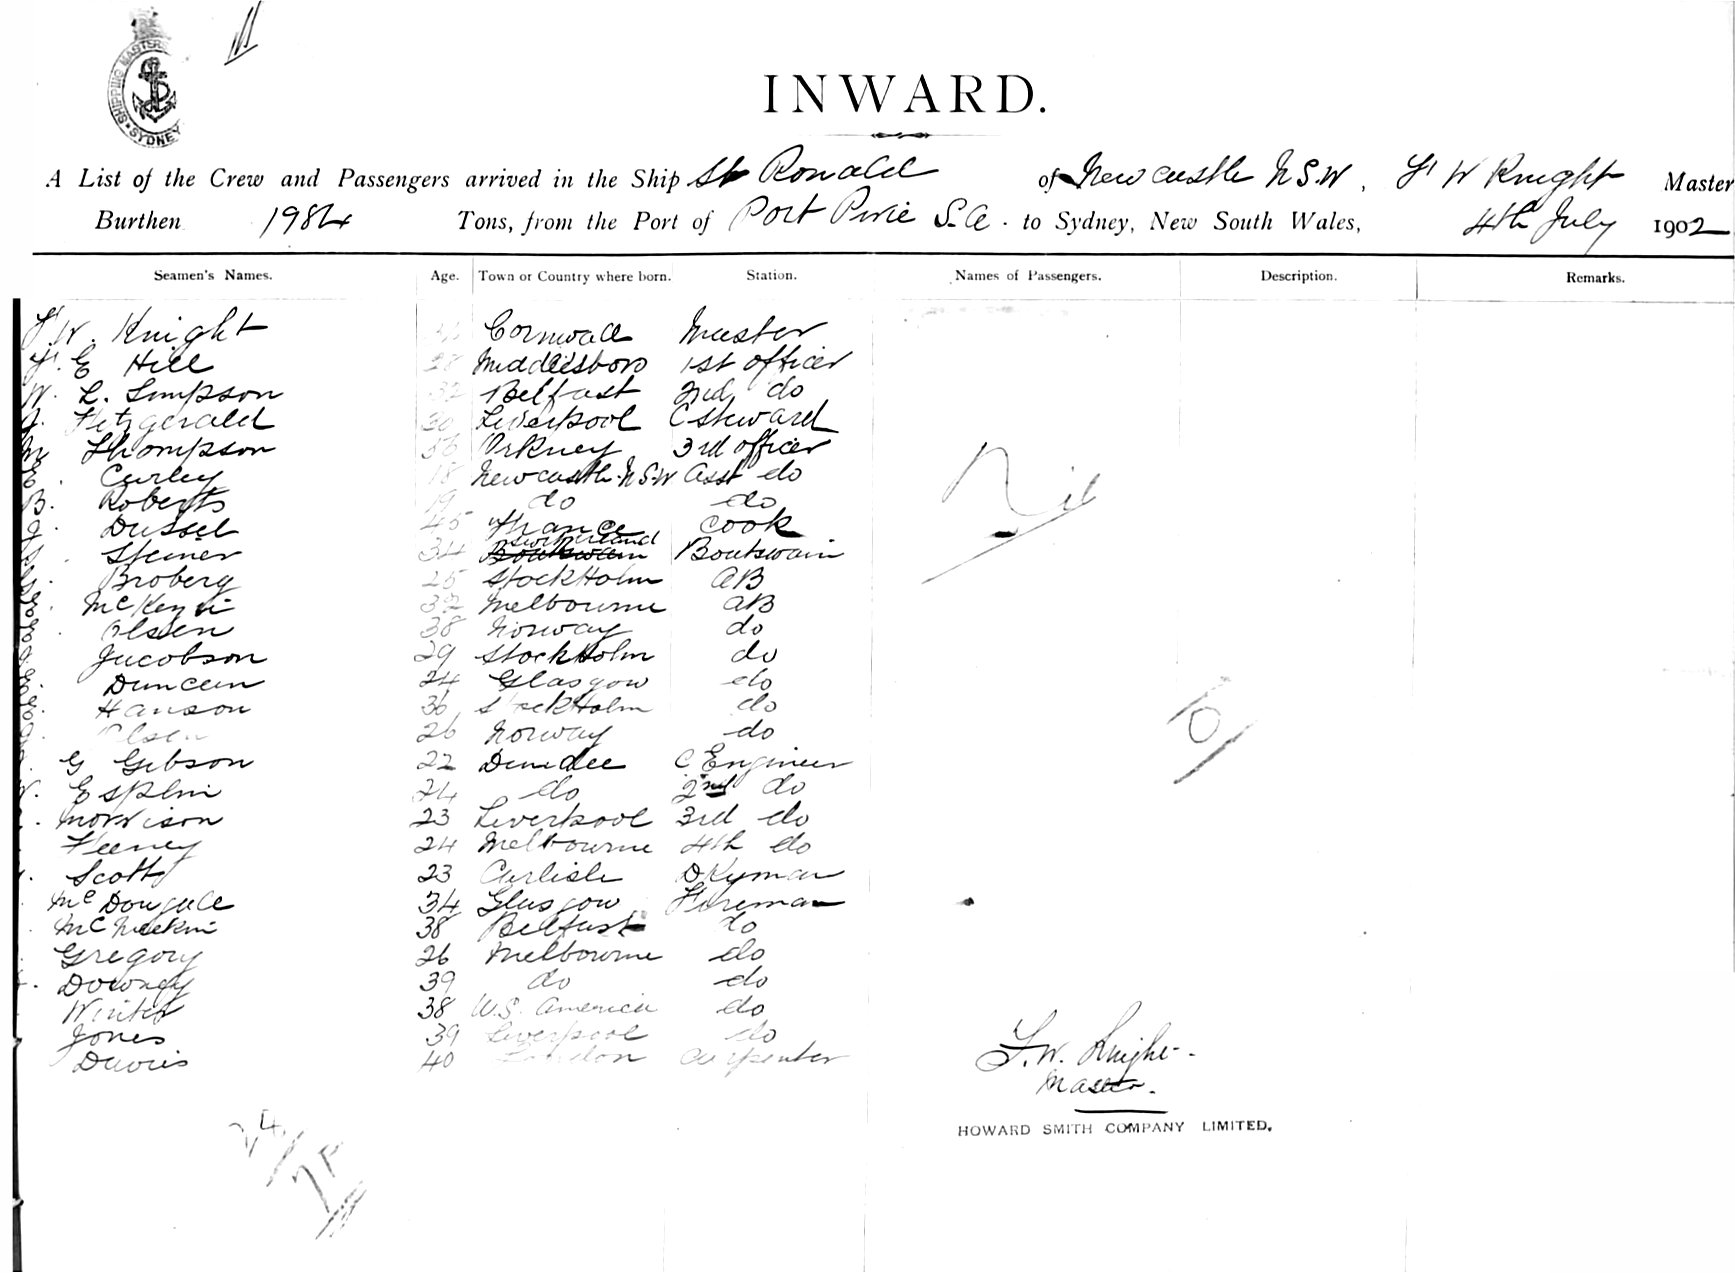 SHIPPING MASTER SYDNEY
INWARD.
A List of the Crew and Passengers arrived in the Ship SS Ronald of Newcastle N.S.W, F W Knight Master
Burthen 1984 Tons, from the Port of Port Pirie S.A. to Sydney, New South Wales, 4th July 1902
Seamen's Names. Age. Town or Country where born. Station. Names of Passengers. Description. Remarks.
F W. Knight Cornwall Master
F. E Hill 28 Middlesboro 1st officer
W. L. Simpson 32 Belfast 2nd do
Fitzgerald 30 Liverpool C Steward
M Thompson 56 Orkney 3rd officer
E. Curley 18 Newcastle. N.S.W Asst do
B. Roberts 19 do do
J. Dussel 45 France Cook
S. Steiner 34 Switzerland Boatswain Boatswain
Broberg 25 Stockholm AB
McKenzie 32 Melbourne AB
Olsen 38 Norway do
Jacobson 29 Stockholm do
Duncan 24 Glasgow do
Hanson 36 Stockholm do
Olsen 26 Norway do
G Gibson 22 Dundee C Engineer
Esplin 24 do 2nd do
Morrison 23 Liverpool 3rd do
Feeney 24 Melbourne 4th do
Scott 23 Carlisle Dkyman
McDougall 34 Glasgow Fireman
McMeekin 38 Belfast do
Gregory 26 Melbourne do
Downey 39 do do
Winter 38 U.S. America do
Jones 39 Liverpool do
Davies 40 London Carpenter
Nil
F.W. Knight
Master.
HOWARD SMITH COMPANY LIMITED.